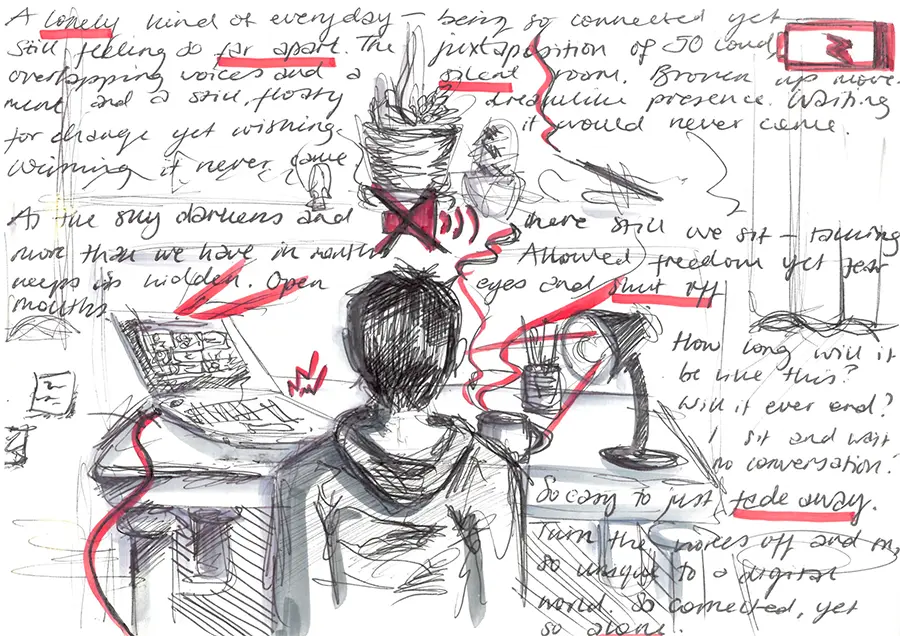 A lonely kind of everyday – being so connected yet
still feeling so far apart. The juxtaposition of so loud,
overlapping voices and a silent room. Broken up move-
ment and a still, floaty dreamlike presence. Waiting
for change yet wishing it would never come.
Wishing it never came
As the sky darkens and there still we sit – talking
more than we have in months Allowed freedom yet fear
keeps us hidden. Open eyes and shut off
mouths
How long will it
be like this?
Will it ever end?
I sit and wait
no conversation?
So easy to just fade away.
Turn the voices off and
so unique to a digital
world. So connected, yet
so alone.